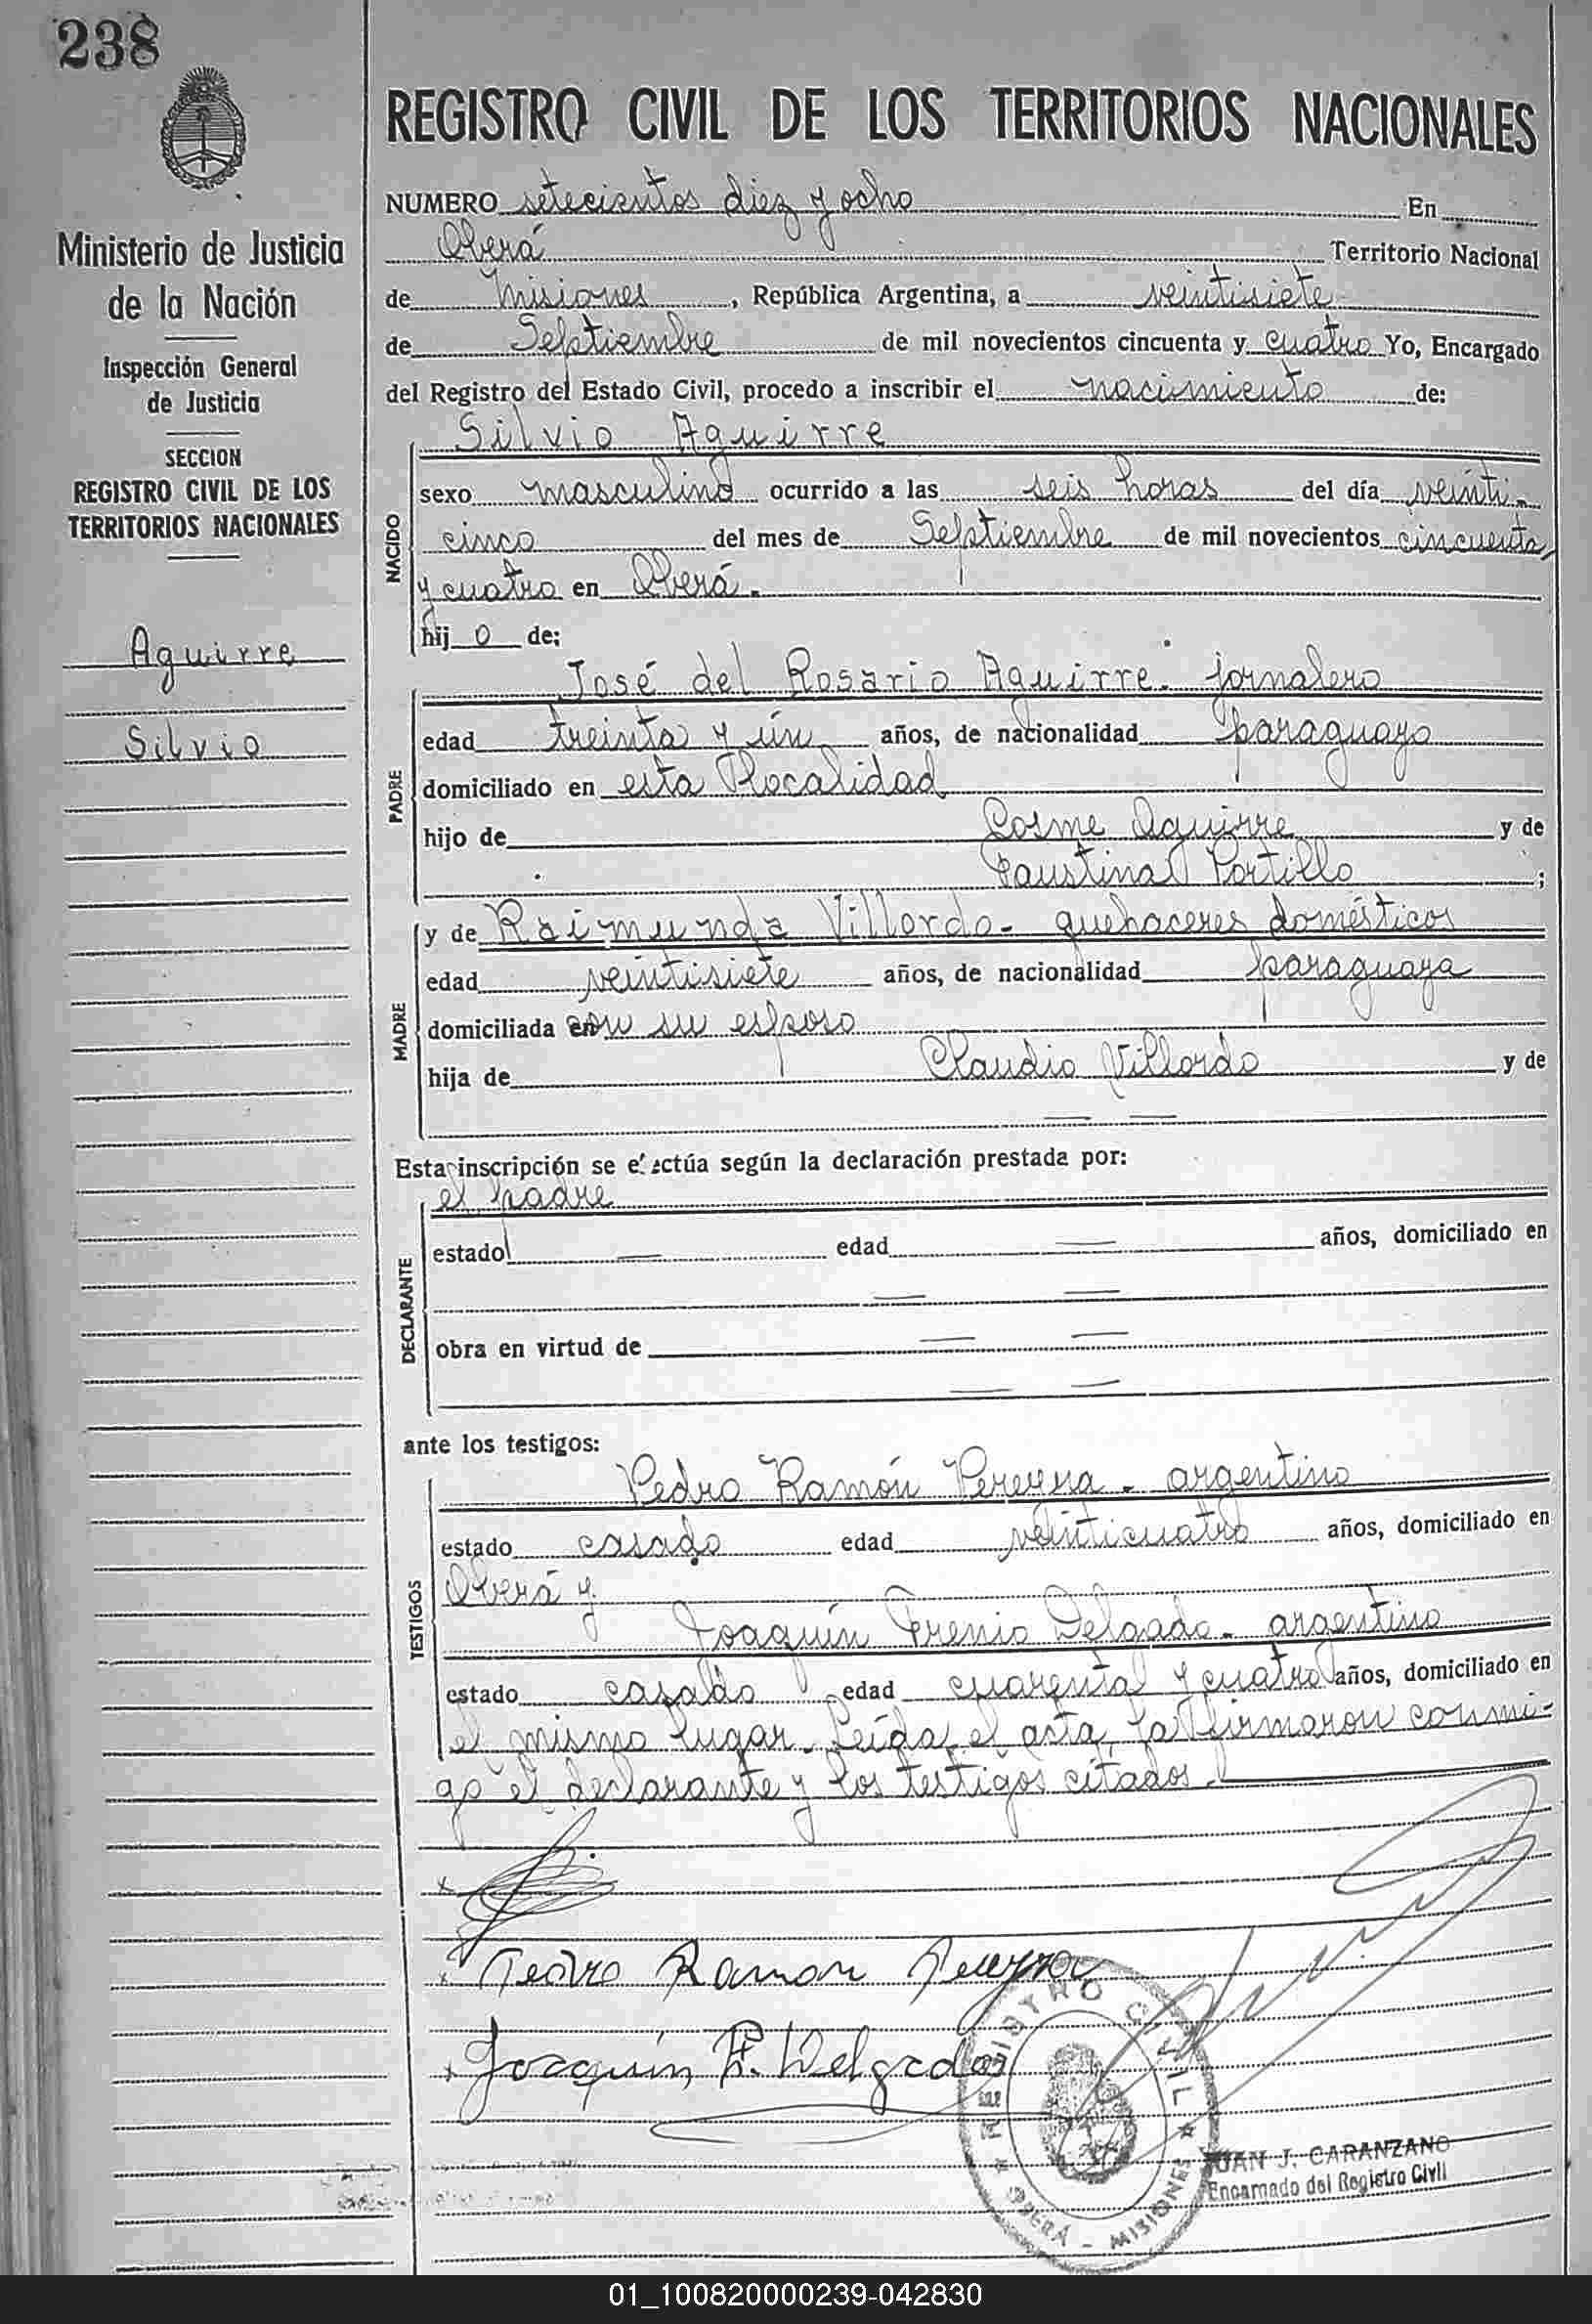 238
Ministerio de Justicia
de la Nación
Inspección General
de Justicia
SECCION
REGISTRO CIVIL DE LOS
TERRITORIOS NACIONALES
Aguirre
Silvio
REGISTRO CIVIL DE LOS TERRITORIOS NACIONALES
NUMERO setecientos diez y ocho En
Oberá Territorio Nacional
de Misiones, República Argentina, a veintisiete
de Septiembre de mil novecientos cincuenta y cuatro Yo, Encargado
del Registro del Estado Civil, procedo a inscribir el nacimiento de:
NACIDO
Silvio Aguirre
sexo masculino ocurrido a las seis horas del día veinti-
cinco del mes de Septiembre de mil novecientos cincuenta
y cuatro en Oberá.
hijo de:
PADRE
José del Rosario Aguirre. jornalero
edad treinta y ún años, de nacionalidad paraguayo
domiciliado en esta localidad
hijo de Cosme Aguirre y de
Faustina Portillo;
MADRE
y de Raimunda Villordo- quehaceres domésticos
edad veintisiete años, de nacionalidad paraguaya
domiciliada con su esposo
hija de Claudio Villordo y de
Esta inscripción se efectúa según la declaración prestada por:
DECLARANTE
el padre
estado — edad — años, domiciliado en
— —
obra en virtud de — —
— —
ante los testigos:
TESTIGOS
Pedro Ramón Pereyra - argentino
estado casado edad veinticuatro años, domiciliado en
Oberá y
Joaquín Delgado - argentino
estado casado edad cuarenta y cuatro años, domiciliado en
el mismo lugar. Leída el acta, la firmaron conmi-
go el declarante y los testigos citados.
x
x Pedro Ramon Pereyra
x Joaquín F. Delgado
REGISTRO CIVIL
OBERÁ - MISIONES
JUAN J. CARANZANO
Encargado del Registro Civil
01_100820000239-042830